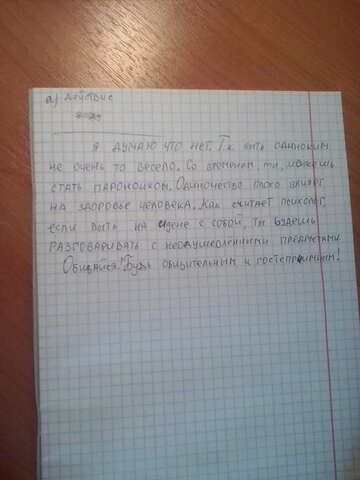 а) действие
Я думаю что нет. Т.к быть одиноким
не очень то весело. Со временем ты, можешь
стать параноиком. Одиночество плохо влияет
на здоровье человека. Как считает психолог,
если быть на идене с собой, ты будешь
разговаривать с неодушевлёнными предметами
Общайся! Будь общительным и гостеприимным!